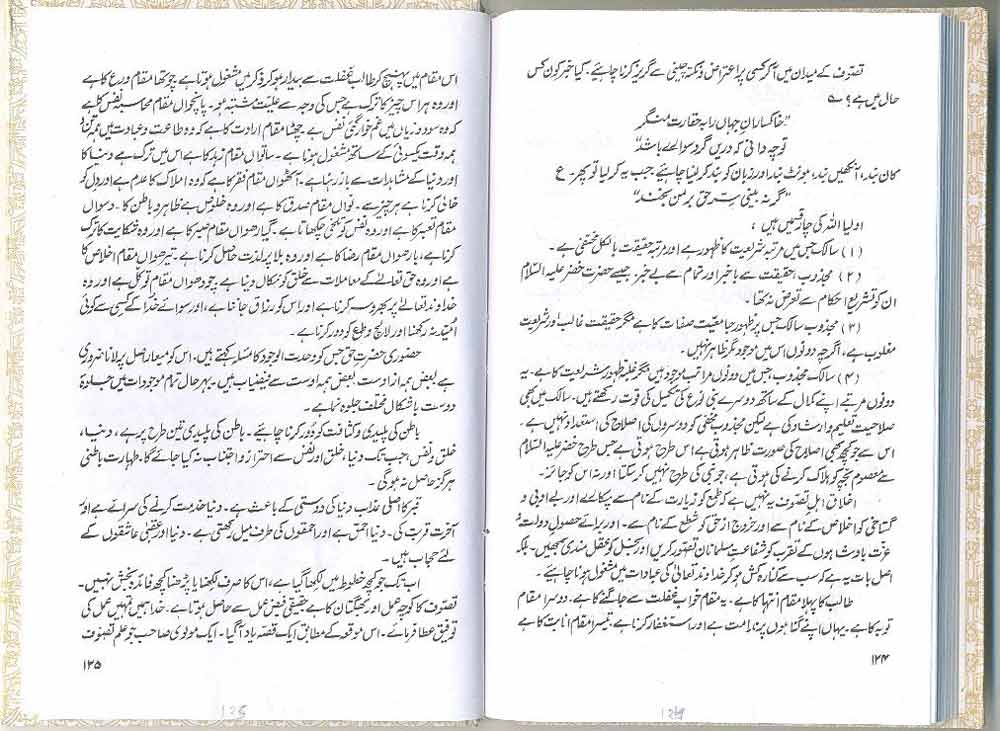 تصوّف کے میدان میں آکر کسی پر اعتراض و نکتہ چینی سے گریز کرنا چاہیئے۔ کیا خبر کون کس
حال میں ہے؟ ے
"خاکسارانِ جہاں را بہ حقارت منگر
تو چہ دانی کہ دریں گرد سوارے باشد"
کان بند، آنکھیں بند، ہونٹ بند اور زبان کو بند کر لینا چاہیئے۔ جب یہ کر لیا تو پھر۔ ع
"گر نہ بینی سِرِّ حق بر من بخند"
اولیا اللہ کی چار قسمیں ہیں :
(۱) سالک جس میں مرتبہ شریعت کا ظہور ہے اور مرتبہ حقیقت بالکل مخفی ہے۔
(۲) مجذوب : حقیقت سے باخبر اور تمام سے بے خبر۔ جیسے حضرت خضر علیہ السّلام
ان کو تشریع احکام سے تعرض نہ تھا۔
(۳) مجذوب سالک جس پر ظہور جامعیّت صفات کا ہے مگر حقیقت غالب اور شریعت
مغلوب ہے، اگرچہ دونوں اس میں موجود مگر ظاہر نہیں۔
(۴) سالک مجذوب جس میں دونوں مراتب موجود ہیں مگر غلبہ ظہور شریعت کا ہے۔ یہ
دونوں مرتبے اپنے کمال کے ساتھ دوسرے بنی نوع کی تکمیل کی قوت رکھتے ہیں۔ سالک میں بھی
صلاحیت تعلیم و ارشاد کی ہے لیکن مجذوب مخفی کو دوسروں کی اصلاح کی استعداد نہیں ہے۔
اس سے جو کچھ بھی اصلاح کی صورت ظاہر ہوتی ہے اس طرح ہوتی ہے جس طرح خضر علیہ السّلام
سے معصوم بچے کو ہلاک کرنے کی ہوئی ہے، جو نبی کی طرح نہیں کر سکتا اور نہ اس کو جائز۔
اخلاق اہلِ تصوّف یہ نہیں ہے کہ طمع کو زیارت کے نام سے پکارے اور بے ادبی و
گستاخی کو اخلاص کے نام سے اور خروج از حق کو شطح کے نام سے۔ اور برائے حصولِ دولت و
عزّت بادشاہوں کے تقرب کو شفاعتِ مسلمانان تصوّر کریں اور بخل کو عقل مندی سمجھیں۔ بلکہ
اصل بات یہ ہے کہ سب سے کنارہ کش ہو کر خداوند تعالیٰ کی عبادات میں مشغول ہونا چاہیئے۔
طالب کا پہلا مقام انتہا کا ہے۔ یہ مقام خوابِ غفلت سے جاگنے کا ہے۔ دوسرا مقام
توبہ کا ہے۔ یہاں اپنے گناہوں پر ندامت ہے اور استغفار کرنا ہے۔ تیسرا مقام انابت کا ہے
۱۲۴
124
اس مقام میں پہنچ کر طالب غفلت سے بیدار ہو کر ذکر میں مشغول ہوتا ہے۔ چوتھا مقام ورع کا ہے
اور وہ ہر اس چیز کا ترک ہے جس کی وجہ سے علیّت مشتبہ ہو۔ پانچواں مقام محاسبہ نفس کا ہے
کہ وہ سود و زیاں میں غم خوارگئی نفس ہے۔ چھٹا مقام ارادت کا ہے کہ وہ طاعت و عبادت میں ہمہ تن و
ہمہ وقت یکسوئی کے ساتھ مشغول ہونا ہے۔ ساتواں مقام زہد کا ہے اس میں ترک ہے دنیا کا
اور دنیا کے مشاہدات سے باز رہنا ہے۔ آٹھواں مقام فقر کا ہے کہ وہ املاک کا عدم ہے اور دل کو
خالی کرنا ہے ہر چیز سے۔ نواں مقام صدق کا ہے اور وہ خلوص ہے ظاہر و باطن کا۔ دسواں
مقام تصبر کا ہے اور وہ نفس کو تلخی چکھانا ہے۔ گیارھواں مقام صبر کا ہے اور وہ شکایت کا ترک
کرنا ہے، بارھواں مقام رضا کا ہے اور وہ بلا پر لذت حاصل کرنا ہے۔ تیرھواں مقام اخلاص کا
ہے اور وہ حق تعالےٰ کے معاملات سے خلق کو نکال دینا ہے۔ چودھواں مقام توکّل ہے اور وہ
خداوند تعالےٰ پر بھروسہ کرنا ہے اور اس کو رزاق جاننا ہے، اور سوائے خدا کے کسی سے کوئی
اُمید نہ رکھنا اور لالچ و طمع کو دور کرنا ہے۔
حضوری حضرتِ حق جس کو وحدت الوجود کا مسئلہ کہتے ہیں۔ اس کو معیارِ اصل پر لانا ضروری
ہے بعض ہمہ از اوست بعض ہمہ اوست سے فیضیاب ہیں۔ بہر حال تمام موجودات میں جلوۂ
دوست باشکال مختلف جلوہ نما ہے۔
باطن کی پلیدی و کثافت کو دُور کرنا چاہیئے۔ باطن کی پلیدی تین طرح پر ہے، دنیا،
خلق و نفس، جب تک دنیا، خلق اور نفس سے احتراز و اجتناب نہ کیا جائے گا۔ طہارت باطنی
ہرگز حاصل نہ ہوگی۔
قبر کا اصلی عذاب دنیا کی دوستی کے باعث ہے۔ دنیا خدمت کرنے کی سرائے ہے اور
آخرت قربت کی۔ دنیا احمق ہے اور احمقوں کی طرف میل رکھتی ہے۔ دنیا اور عقبیٰ عاشقوں کے
لئے حجاب ہیں۔
اب تک جو کچھ خطوط میں لکھا گیا ہے، اس کا صرف لکھنا یا پڑھنا کچھ فائدہ بخش نہیں۔
تصوف کا کوچہ عمل اور بھگتان کا ہے۔ حقیقی فیض عمل سے حاصل ہوتا ہے۔ خدا ہمیں تمہیں عمل کی
توفیق عطا فرمائے۔ اس موقعہ کے مطابق ایک قصّہ یاد آگیا۔ ایک مولوی صاحب جو علم تصوّف
۱۲۵
125